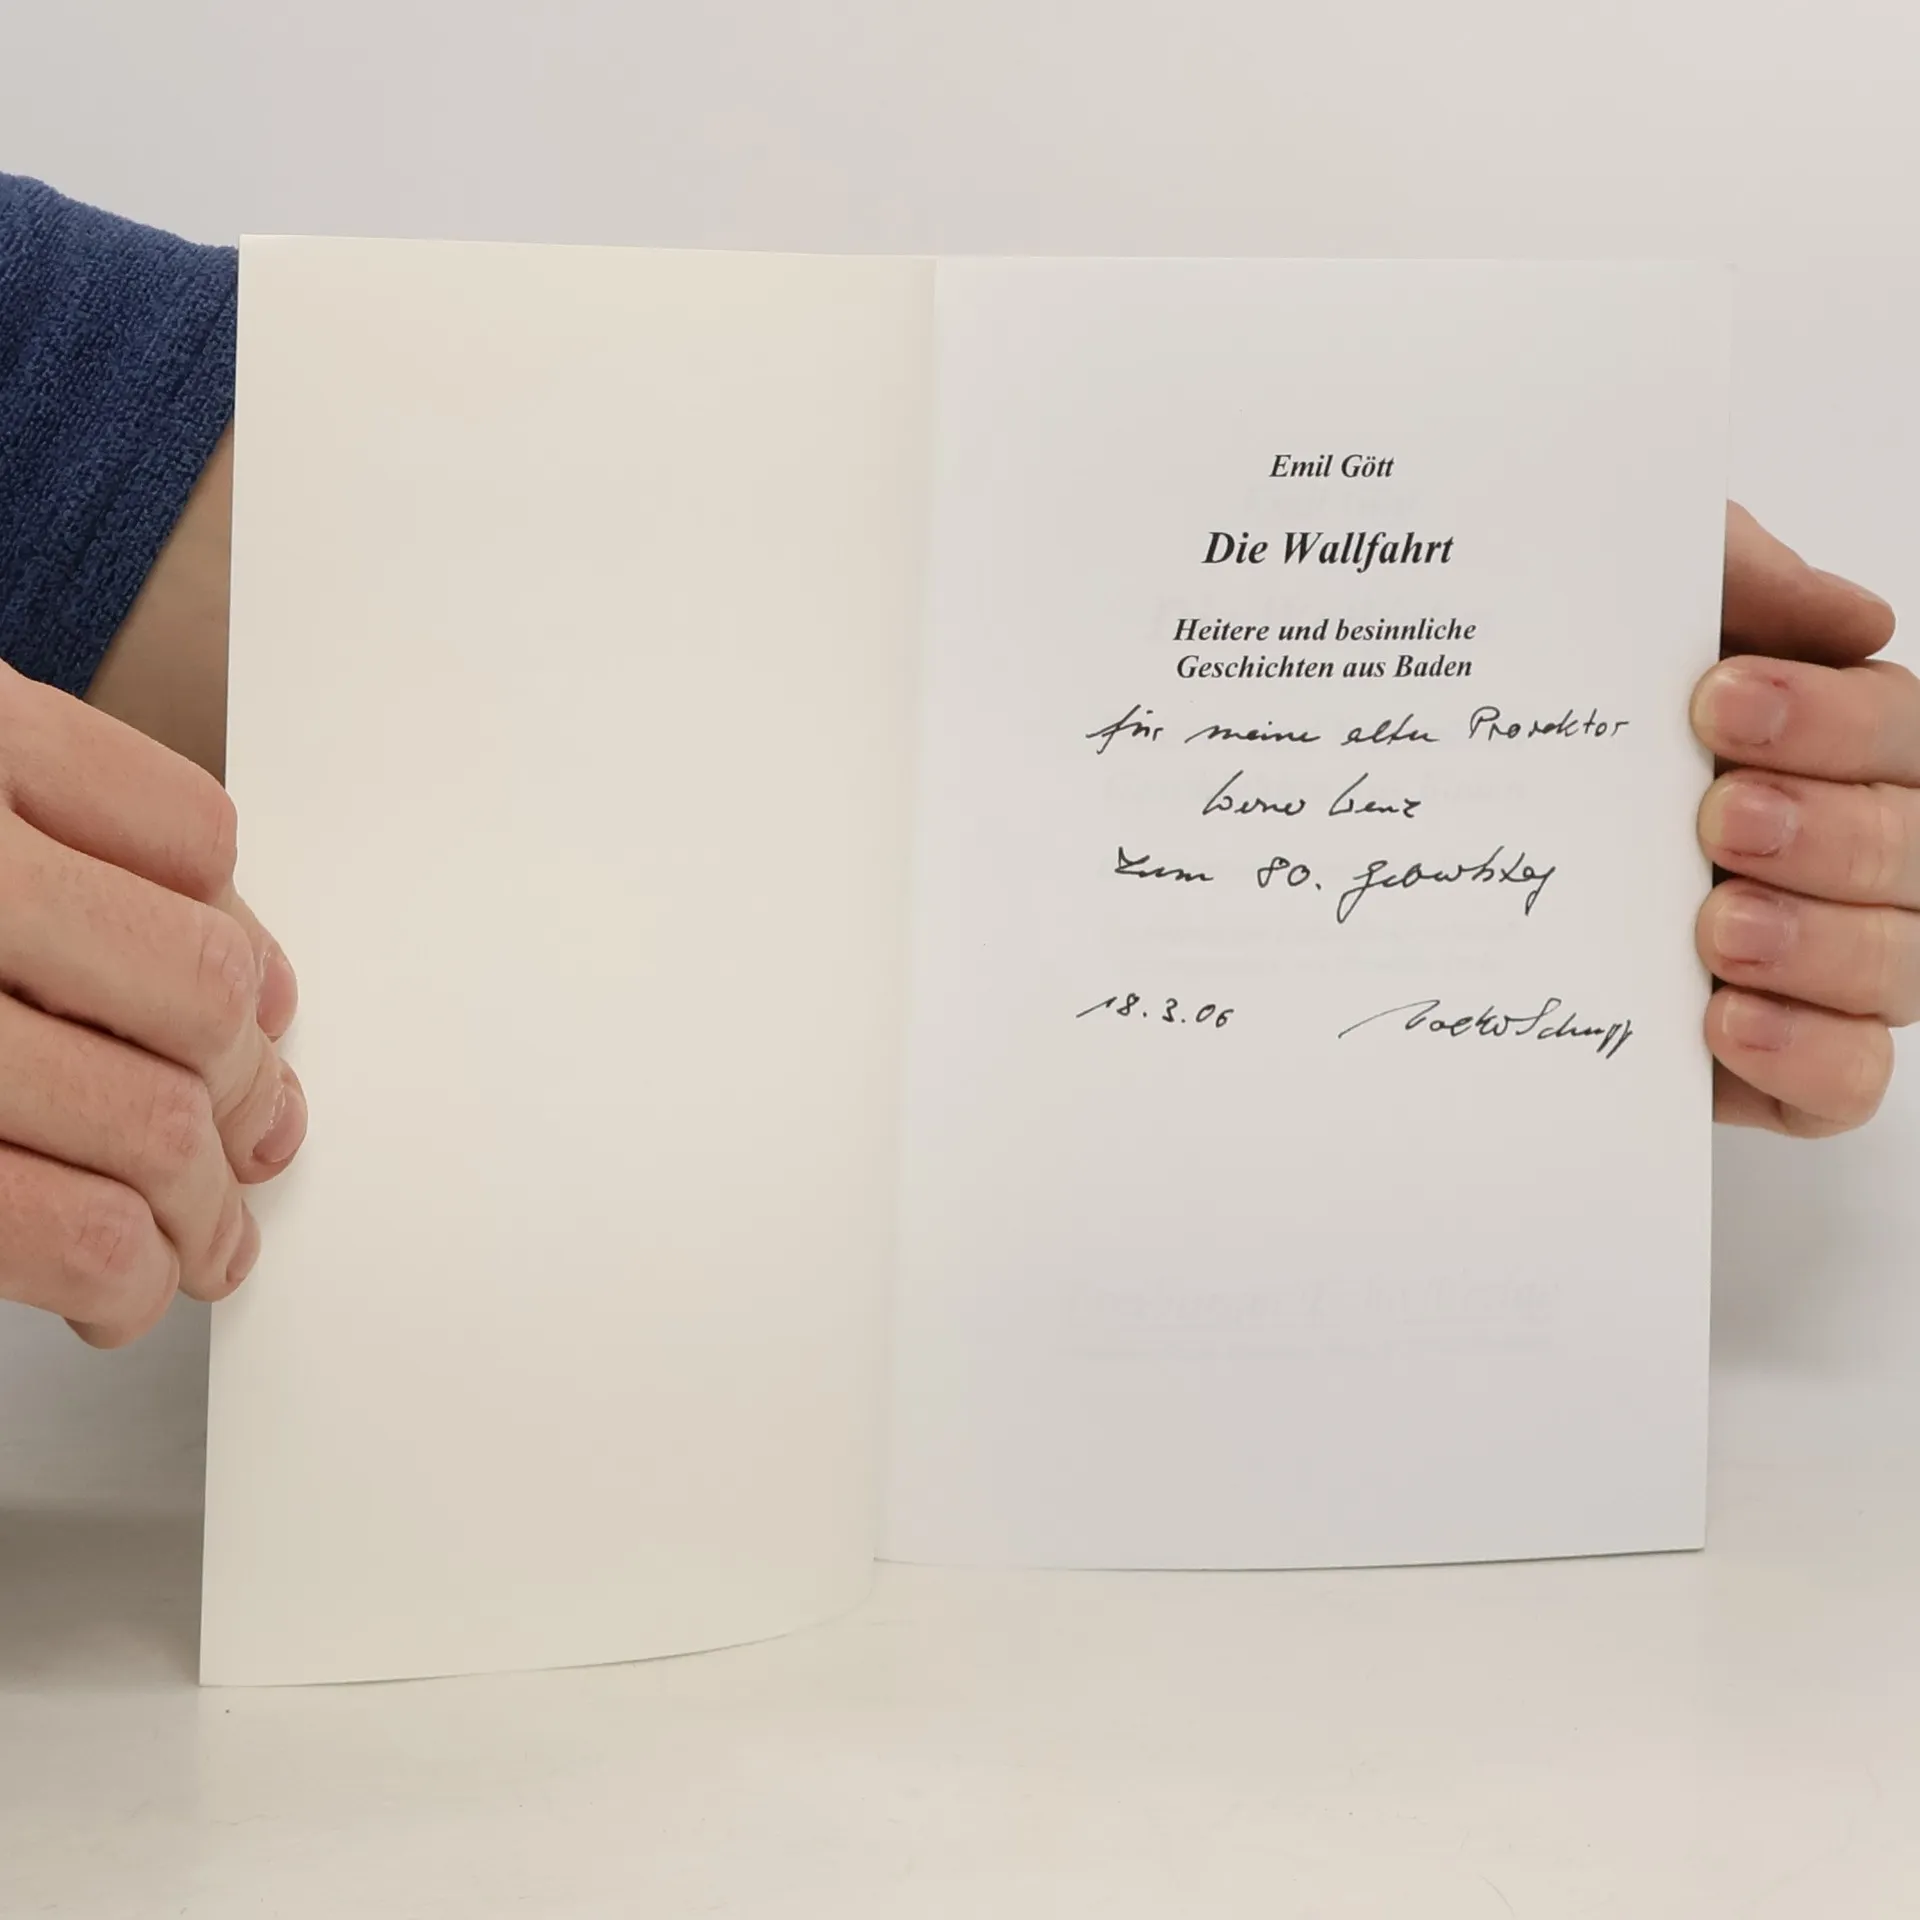 Emil Gött
Die Wallfahrt
Heitere und besinnliche
Geschichten aus Baden
für meine alten Prorektor
Werner Benz
zum 80. Geburtstag
18.3.06 Volker Schupp